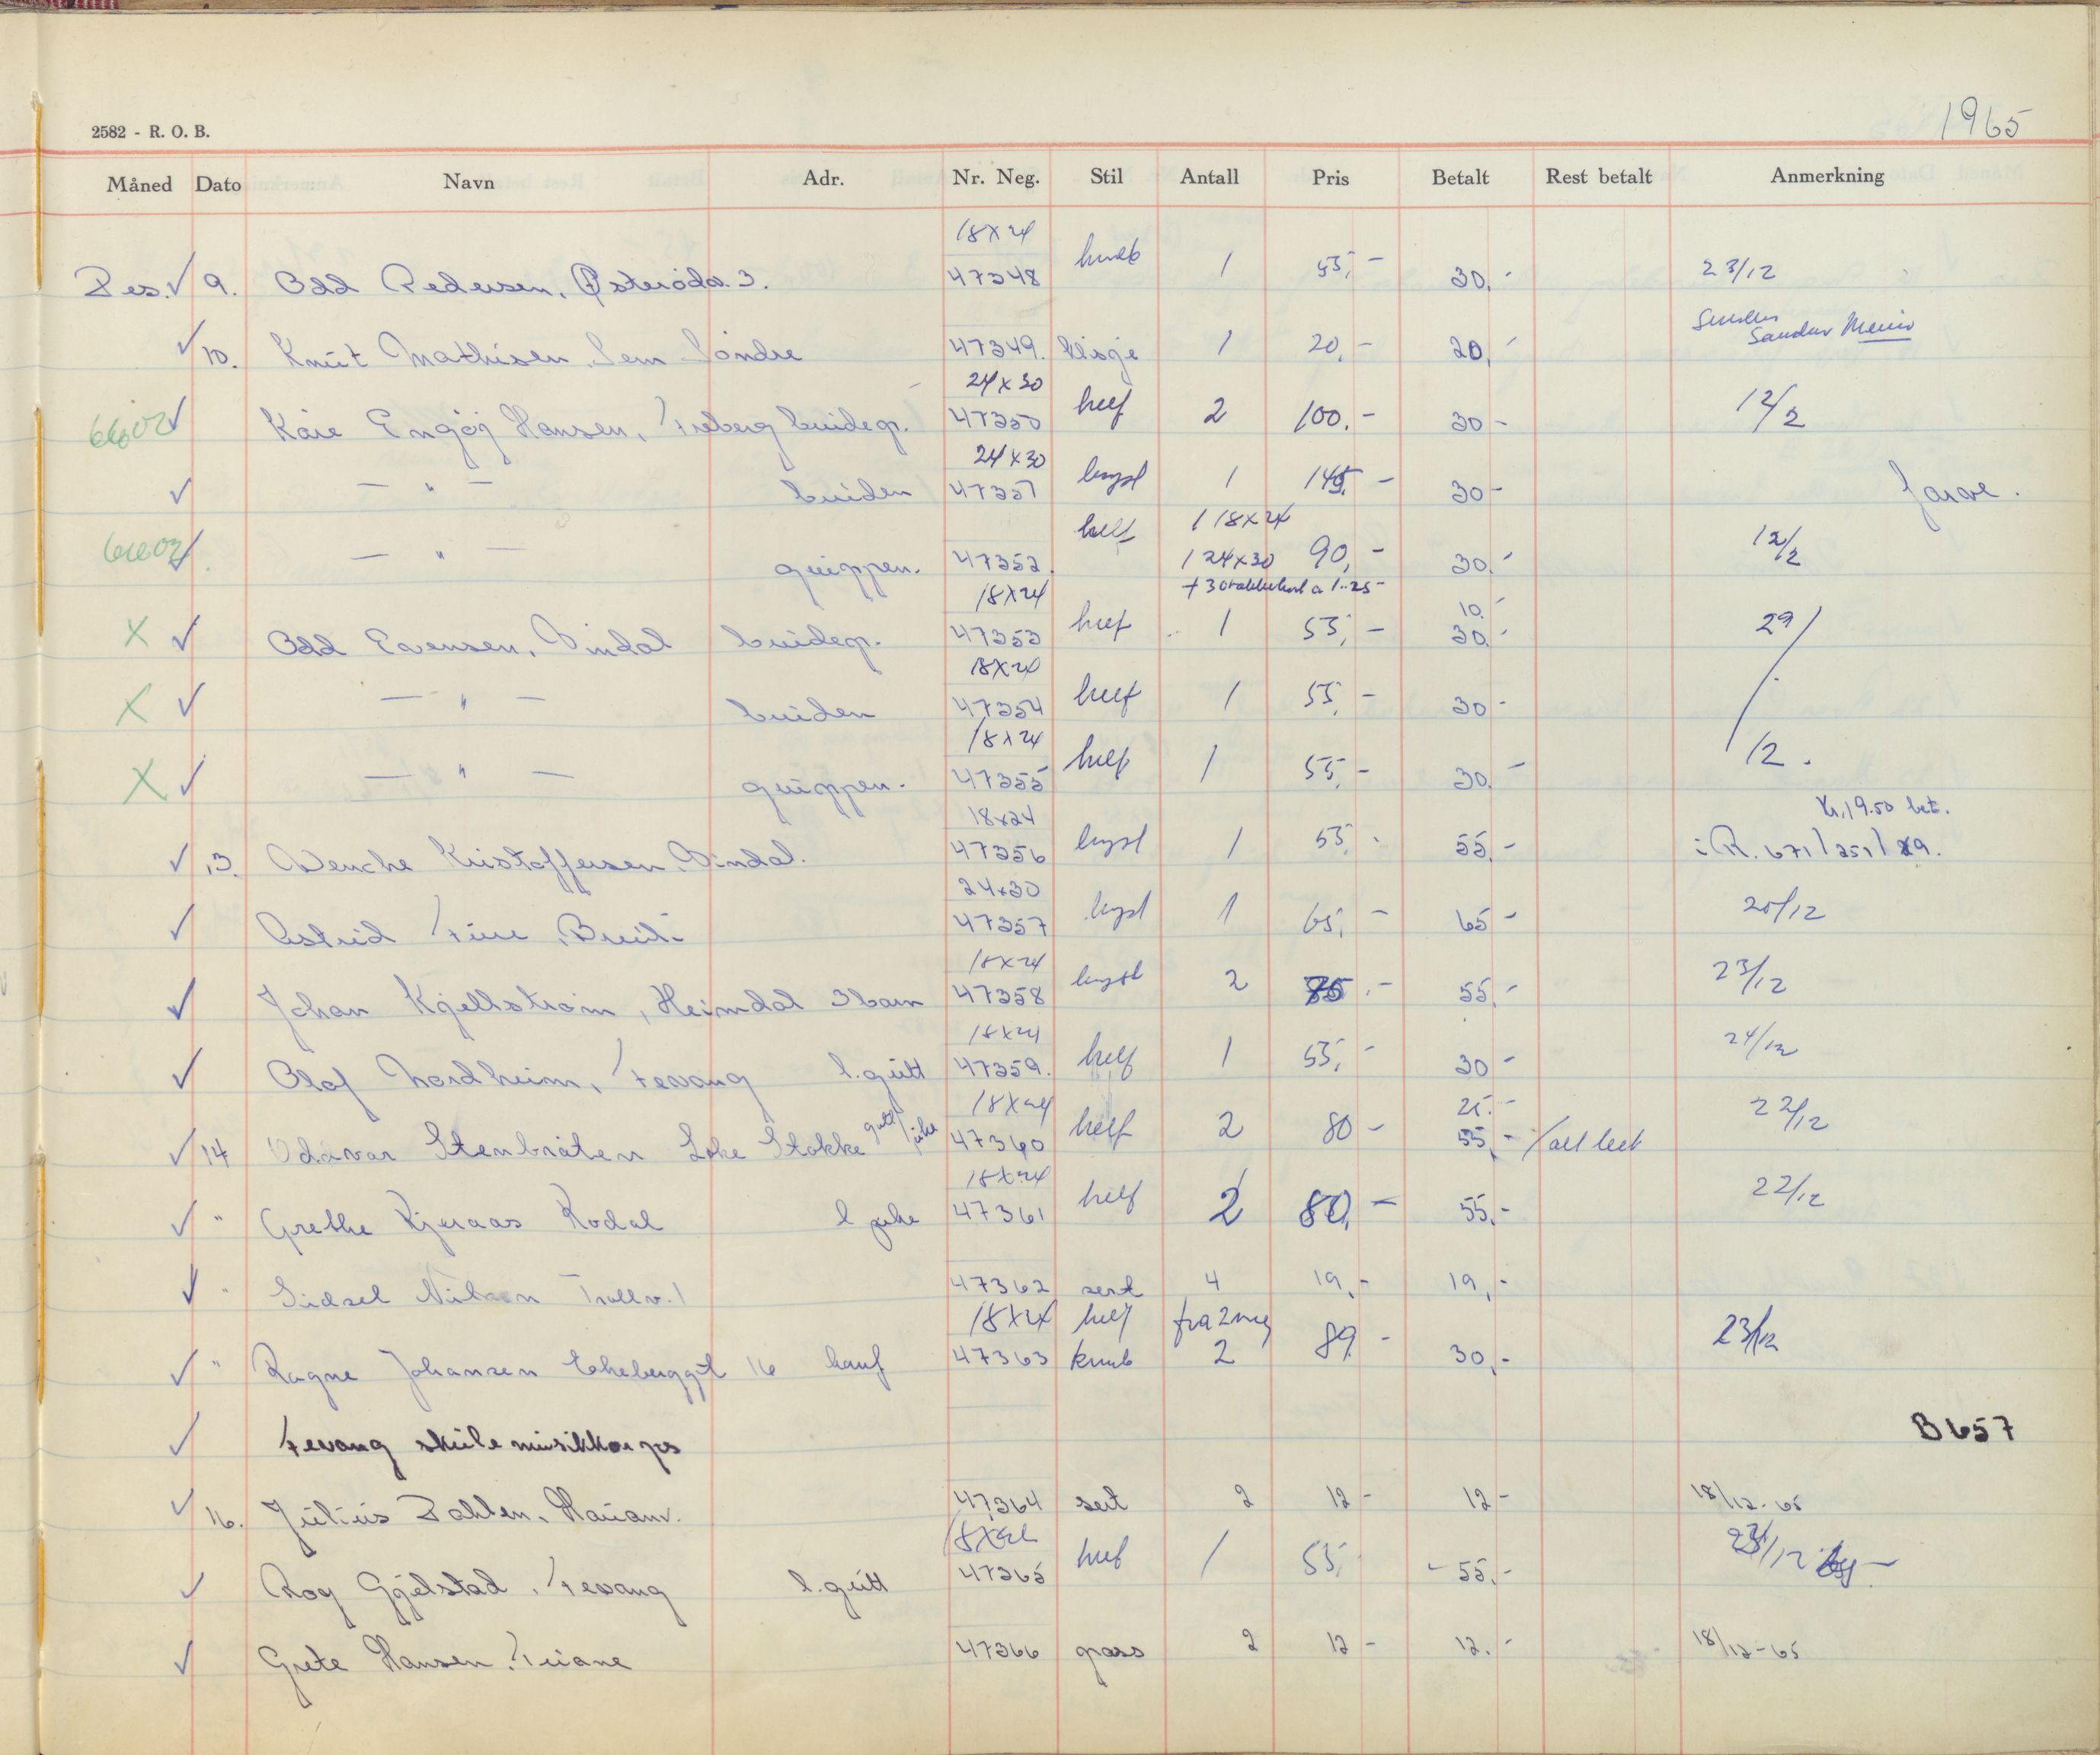 1965
2582 - R. O. B.
Måned Dato Navn Adr. Nr. Neg. Stil Antall Pris Betalt Rest betalt Anmerkning
18x24
Des. ✓ 9. Odd Pedersen, Østerödv. 3. 47348 1 55,- 30,- 23/12
✓ 10. Knut Mathisen, Sem Söndre 47349. klisje 1 20,- 20,- Sendes Sandar Menin
24x30
✓ Kåre Engöy Hansen, Freberg brudep. 47350 helf 2 100,- 30- 12/2
24x30
✓ — " — bruden 47351 lyst 1 145,- 30- farve.
1 18x24
✓ — " — gruppen. 47352 helf 1 24x30 90,- 30,- 12/2
+ 30 takkekort a 1.25-
18x24 10,-
X ✓ Odd Evensen, Vindal brudep. 47353 helf 1 55,- 30,- 29/
18x24
X ✓ — " — bruden 47354 helf 1 55,- 30-
18x24
X ✓ — " — gruppen. 47355 helf 1 55,- 30,- 12.
18x24 Kr. 19.50 bet.
✓ 13. Wenche Kristoffersen, Vindal. 47356 lyst 1 55,- 55,- i R. 671/251/29.
24x30
✓ Astrid Fine, 47357 lyst 1 65,- 65- 20/12
18x24
✓ Johan Kjellström, Heimdal 3 barn 47358 lyst 2 55,- 23/12
18x24
✓ Olaf Nordheim, Fevang l. gutt 47359. helf 1 55,- 30- 24/12
18x24 25,-
✓ 14 Oddvar Stenbråten Loke Stokke gutt/pike 47360 helf 2 80- 55,- 22/12
18x24
✓ " Grethe Kjeraas Rodal l pike 47361 helf 2 80,- 55,- 22/12
✓ " Sidsel Nilsen Trollv. 1 47362 sert 4 19,- 19,-
18x24 helf fra 2 neg
✓ " Ragne Johansen Ekeberggt 16 konf 47363 knieb 2 89- 30,- 23/12
✓ Fevang skule musikkorps B 657
✓ 16. Julius Dahlen, Hauanv. 47364 sert 2 12- 12- 18/12-65
18x24
✓ Roy Gjelstad, Fevang l. gutt 47365 helf 1 55,- 55,- 23/12
✓ Grete Hansen, Furane 47366 pass 2 12- 12,- 18/12-65